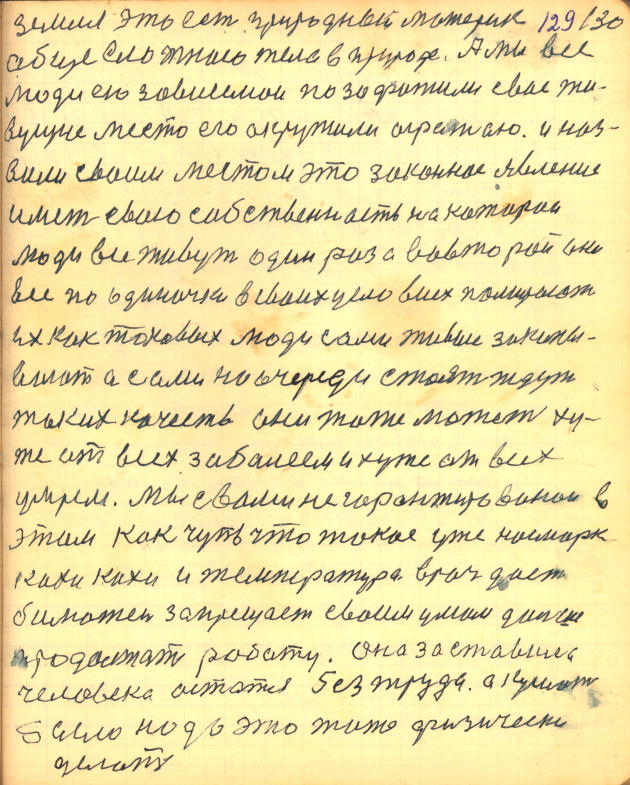 земля это ест природный материк 129/30
обще сложного тела в природе. А мы все
люди ею зависемои позафатили свае жи-
вущие место его окружили ограгаю. и наз-
вали своим местом это законное явление
имет свою собственность на которой
люди все живут один раз а вовторой они
все по одиночки в своих условиех помирают
их как таковых люди сами живые закапы-
вают а сами наочереди стоят ждут
таких качеств они тоже может ху-
же от всех заболеем и хуже от всех
умрем. Мы с вами не гарантированои в
этом как чуть что такое уже насморк
кахи кахи и температура врач дает
биложен запрещает своим умам дальше
продолжат работу. Она заставила
человека остатся без труда. а кушат
было надо это тоже физически
делать